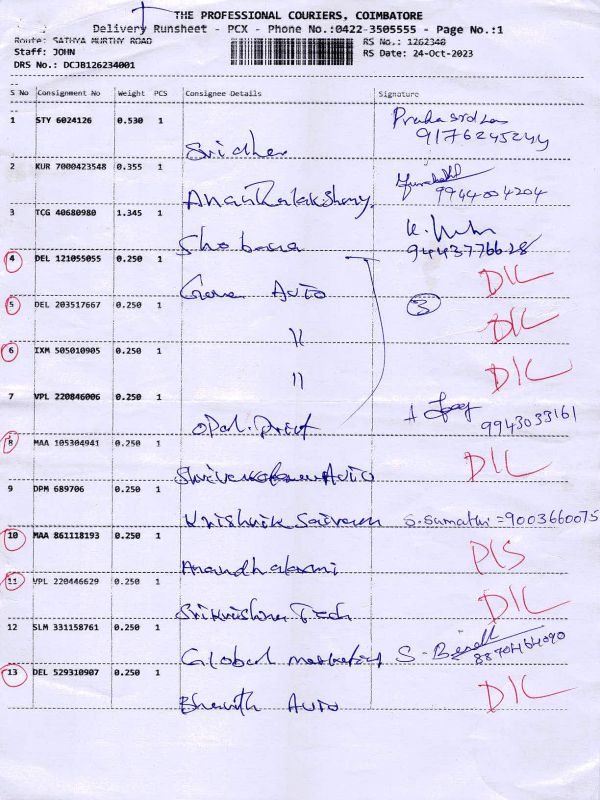 THE PROFESSIONAL COURIERS, COIMBATORE
Delivery Runsheet - PCX - Phone No.:0422-3505555 - Page No.:1
Route: SATHYA MURTHY ROAD RS No.: 1262340
Staff: JOHN RS Date: 24-Oct-2023
DRS No.: DCJB126234001
S No Consignment No Weight PCS Consignee Details Signature
1 STY 6024126 0.530 1 Sridher 9176245244
2 KUR 7000423548 0.355 1 9944004204
3 TCG 40680980 1.345 1 Shobana 9443776628
4 DEL 121055055 0.250 1 Auto D/L
5 DEL 203517667 0.250 1 〃 3 D/L
6 IXM 505010905 0.250 1 〃 D/L
7 VPL 220846006 0.250 1 9943033161
8 MAA 105304941 0.250 1 Auto D/L
9 DPM 689706 0.250 1 S. Sumathi = 9003660075
10 MAA 861118193 0.250 1
11 VPL 220446629 0.250 1 Srikrishna Tech D/L
12 SLM 331158761 0.250 1 Global marketing
13 DEL 529310907 0.250 1 Auto D/L